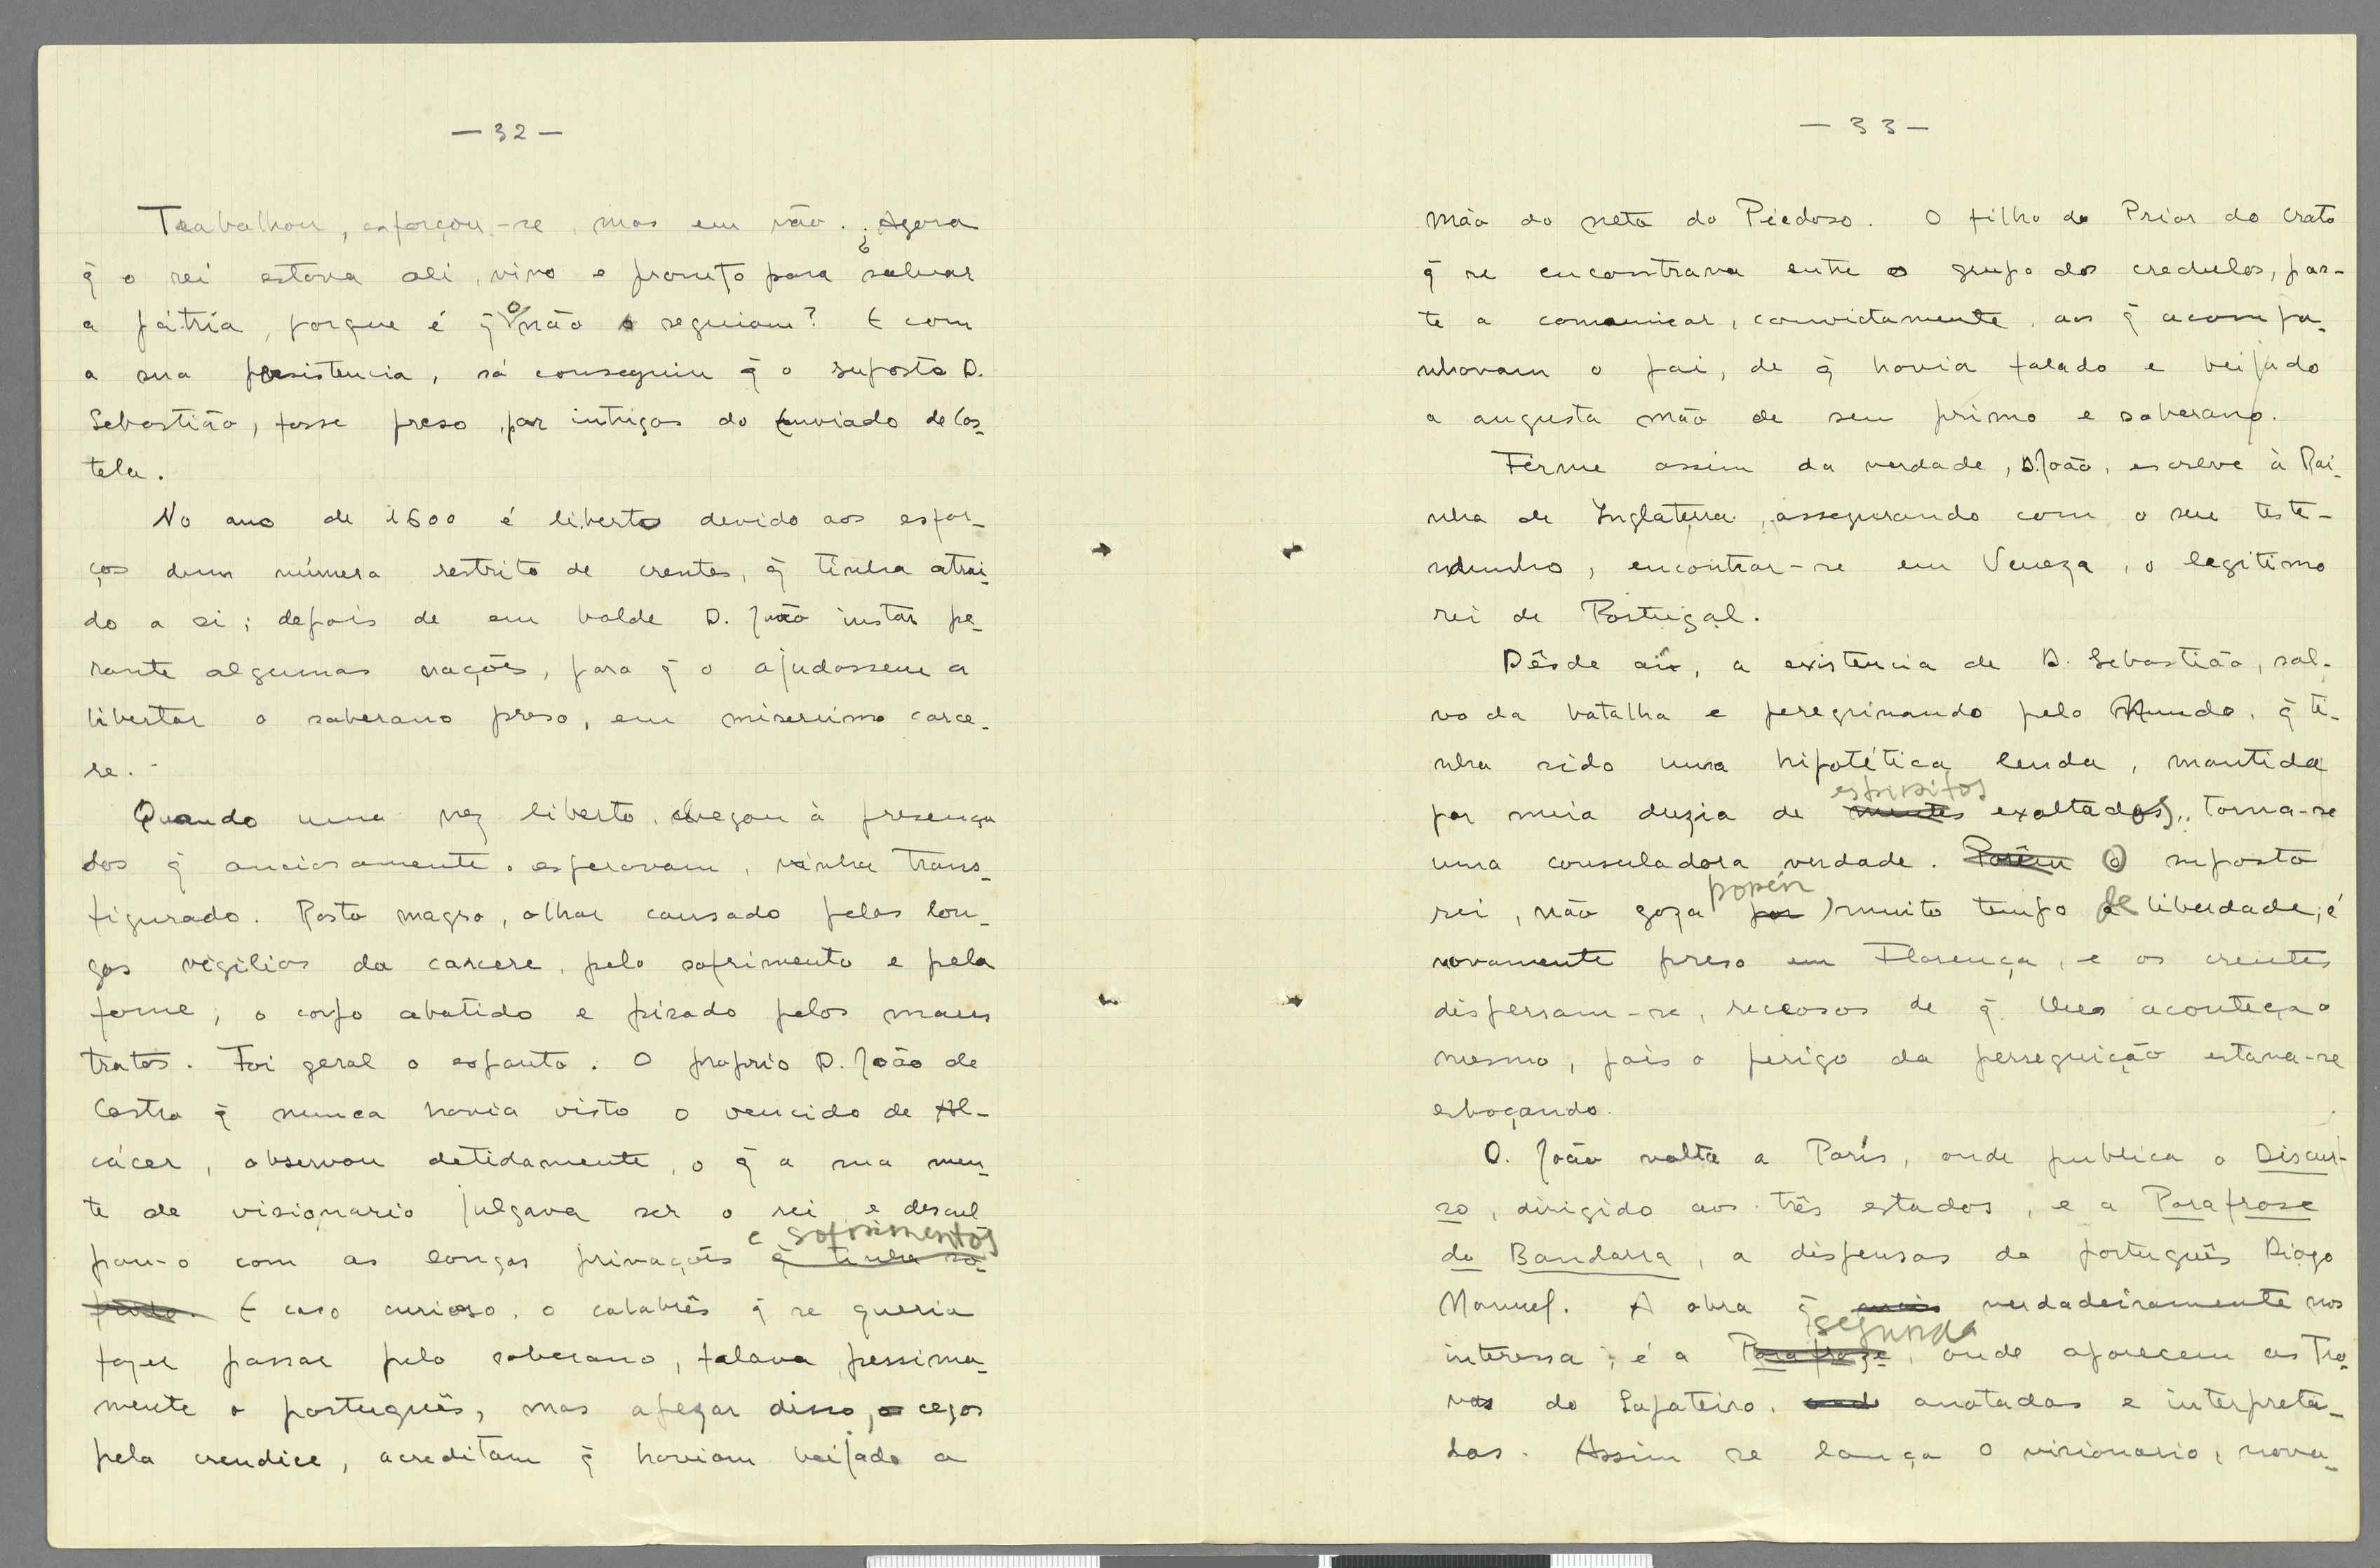 — 32 —
Trabalhou, esforçou-se, mas em vão. ¿Agora
q̃ o rei estava ali, vivo e pronto para salvar
a pátria, porque é q̃ o não seguiam? E com
a sua persistencia, só conseguiu q̃ o suposto D.
Sebastião, fosse preso, por intrigas do Enviado de Cas-
tela.
No ano de 1600 é liberto devido aos esfor-
ços dum número restrito de crentes, q̃ tinha atrai-
do a si; depois de em balde D. João instar pe-
rante algumas nações, para q̃ o ajudassem a
libertar o soberano preso, em miserrimo carce-
re.
Quando uma vez liberto, chegou à presença
dos q̃ anciosamente o esperavam, vinha trans-
figurado. Rosto magro, olhar cansado pelas lon-
gas vigilias do carcere, pelo sofrimento e pela
fome; o corpo abatido e pizado pelos maus
tratos. Foi geral o espanto. O proprio D. João de
Castro q̃ nunca havia visto o vencido de Al-
cácer, observou detidamente, o q̃ a sua men-
te de visionario julgava ser o rei e descul
pou-o com as longas privações e sofrimentos q̃ tinha so-
frido. E caso curioso, o calabrês q̃ se queria
fazer passar pelo soberano, falava pessima-
mente o português, mas apezar disso, cegos
pela crendice, acreditam q̃ haviam beijado a
— 33 —
mão do neto do Piedoso. O filho do Prior do Crato
q̃ se encontrava entre o grupo dos credulos, par-
te a comunicar, convictamente, aos q̃ acompa-
nhavam o pai, de q̃ havia falado e beijado
a augusta mão de seu primo e soberano.
Firme assim da verdade, D. João, escreve à Rai-
nha de Inglaterra, assegurando com o seu teste-
munho, encontrar-se em Veneza, o legitimo
rei de Portugal.
Dêsde aí, a existencia de D. Sebastião, sal-
vo da batalha e peregrinando pelo Mundo, q̃ ti-
nha sido uma hipotética lenda, mantida
por meia duzia de mentes espiritos exaltados, torna-se
uma consoladora verdade. Porêm O suposto
rei, não goza por porém muito tempo de liberdade; é
novamente preso em Florença, e os crentes
dispersam-se, receosos de q̃ lhes aconteça o
mesmo, pois o perigo da perseguição estava-se
esboçando.
D. João volta a París, onde publica o Discur-
so, dirigido aos três estados, e a Parafrase
do Bandarra, a dispensas do português Diogo
Manuel. A obra q̃ mais verdadeiramente nos
interessa, é a Parafraze segunda, onde aparecem as Tro-
vas do Sapateiro, anotadas e interpreta-
das. Assim se lança o visionario, nova-